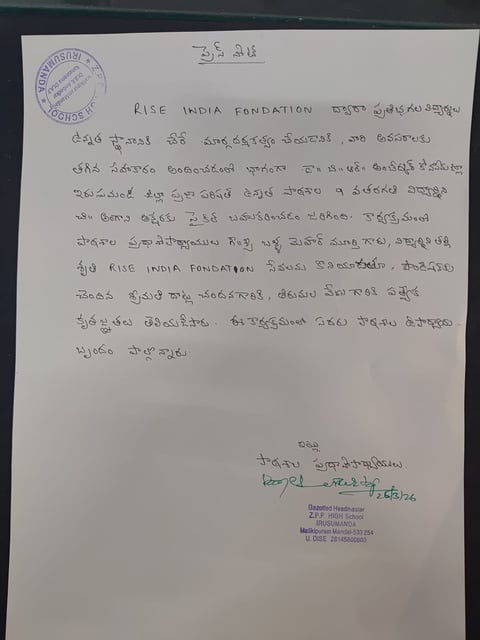 ప్రెస్ నోట్
Z.P.P. HIGH SCHOOL
IRUSUMANDA
RISE INDIA FONDATION ద్వారా ప్రతిభగల విద్యార్థులు
ఉన్నత స్థానానికి చేరే మార్గదర్శకత్వం చేయడానికి, వారి అవసరాలకు
తగిన సహకారం అందించడంలో భాగంగా డా॥ బి॥ఆర్॥ అంబేద్కర్ కోనసీమజిల్లా
ఇరుసుమండ జిల్లా ప్రజా పరిషత్ ఉన్నత పాఠశాల 9 వతరగతి విద్యార్థిని
చి॥ అక్షరకు సైకిల్ బహుకరించడం జరిగింది. కార్యక్రమంలో
పాఠశాల ప్రధానోపాధ్యాయులు మెహర్ మూర్తి గారు, విద్యార్థిని తల్లి
శృతి RISE INDIA FONDATION సేవలను కొనియాడుతూ, ఫౌండేషన్‌కు
చెందిన శ్రీమతి చందనగారికి, తిరుమల వేణు గారికి
కృతజ్ఞతలు తెలియజేసారు. ఈ కార్యక్రమంలో పాఠశాల ఉపాధ్యాయ
బృందం పాల్గొన్నారు.
ఇట్లు
పాఠశాల ప్రధానోపాధ్యాయులు
26/3/26
Gazetted Headmaster
Z.P.P HIGH School
IRUSUMANDA
Malikipuram Mandal-533 254
U. DISE 28145800803